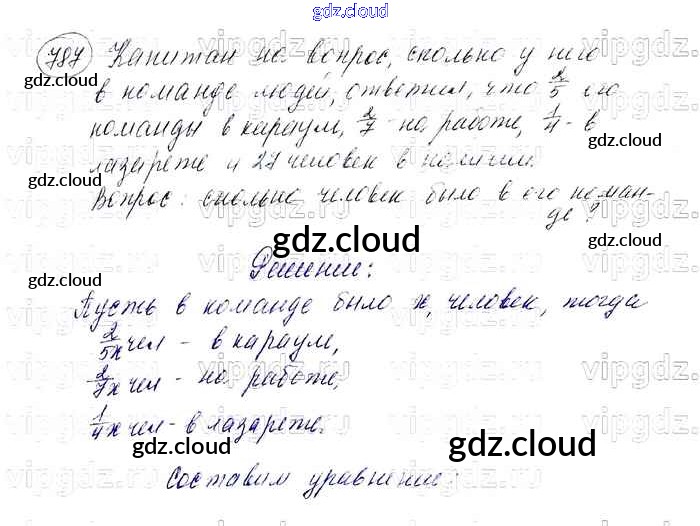 gdz.cloud
787 Капитан на вопрос, сколько у него
в команде людей, ответил, что 2/5 его
команды в карауле, 2/7 - на работе, 1/4 - в
лазарете и 27 человек в наличии.
Вопрос: сколько человек было в его коман-
де?
Решение:
Пусть в команде было х человек, тогда
2/5х чел - в карауле,
2/7х чел - на работе,
1/4х чел - в лазарете.
Составим уравнение:
gdz.cloud
gdz.cloud
gdz.cloud
gdz.cloud
gdz.cloud
gdz.cloud
gdz.cloud
gdz.cloud
gdz.cloud
gdz.cloud